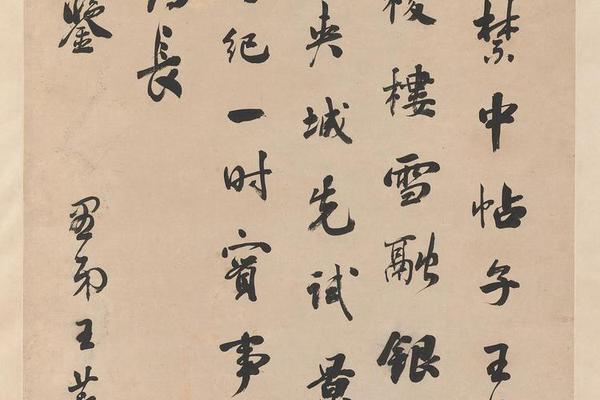 禁中帖子王
樓雪融銀
夾城先試
紀一时實事
長
鑒 弟王